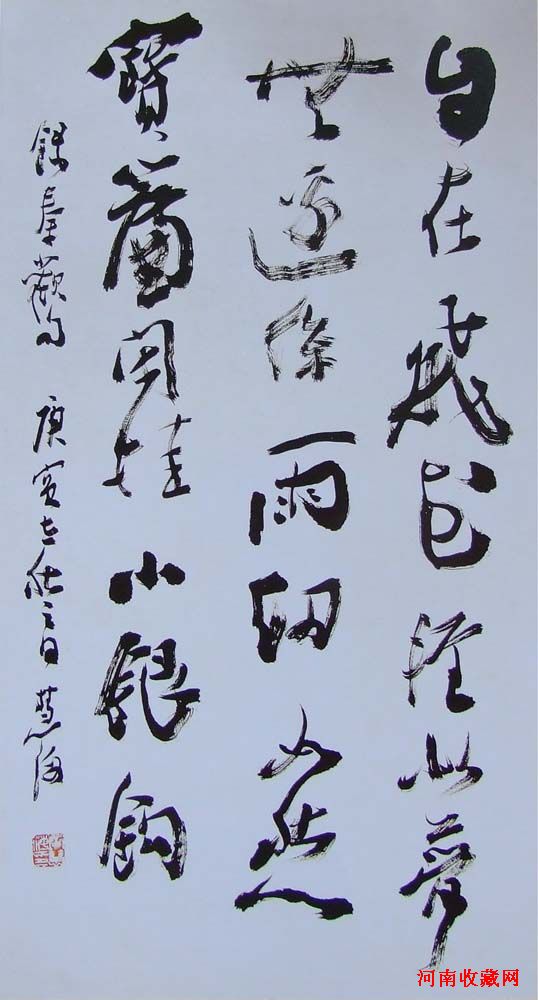 自在飛花輕似夢
無邊絲雨細如愁
寶簾閑挂小銀鉤
錄秦觀句 庚寅立秋之日 慧海
河南收藏网